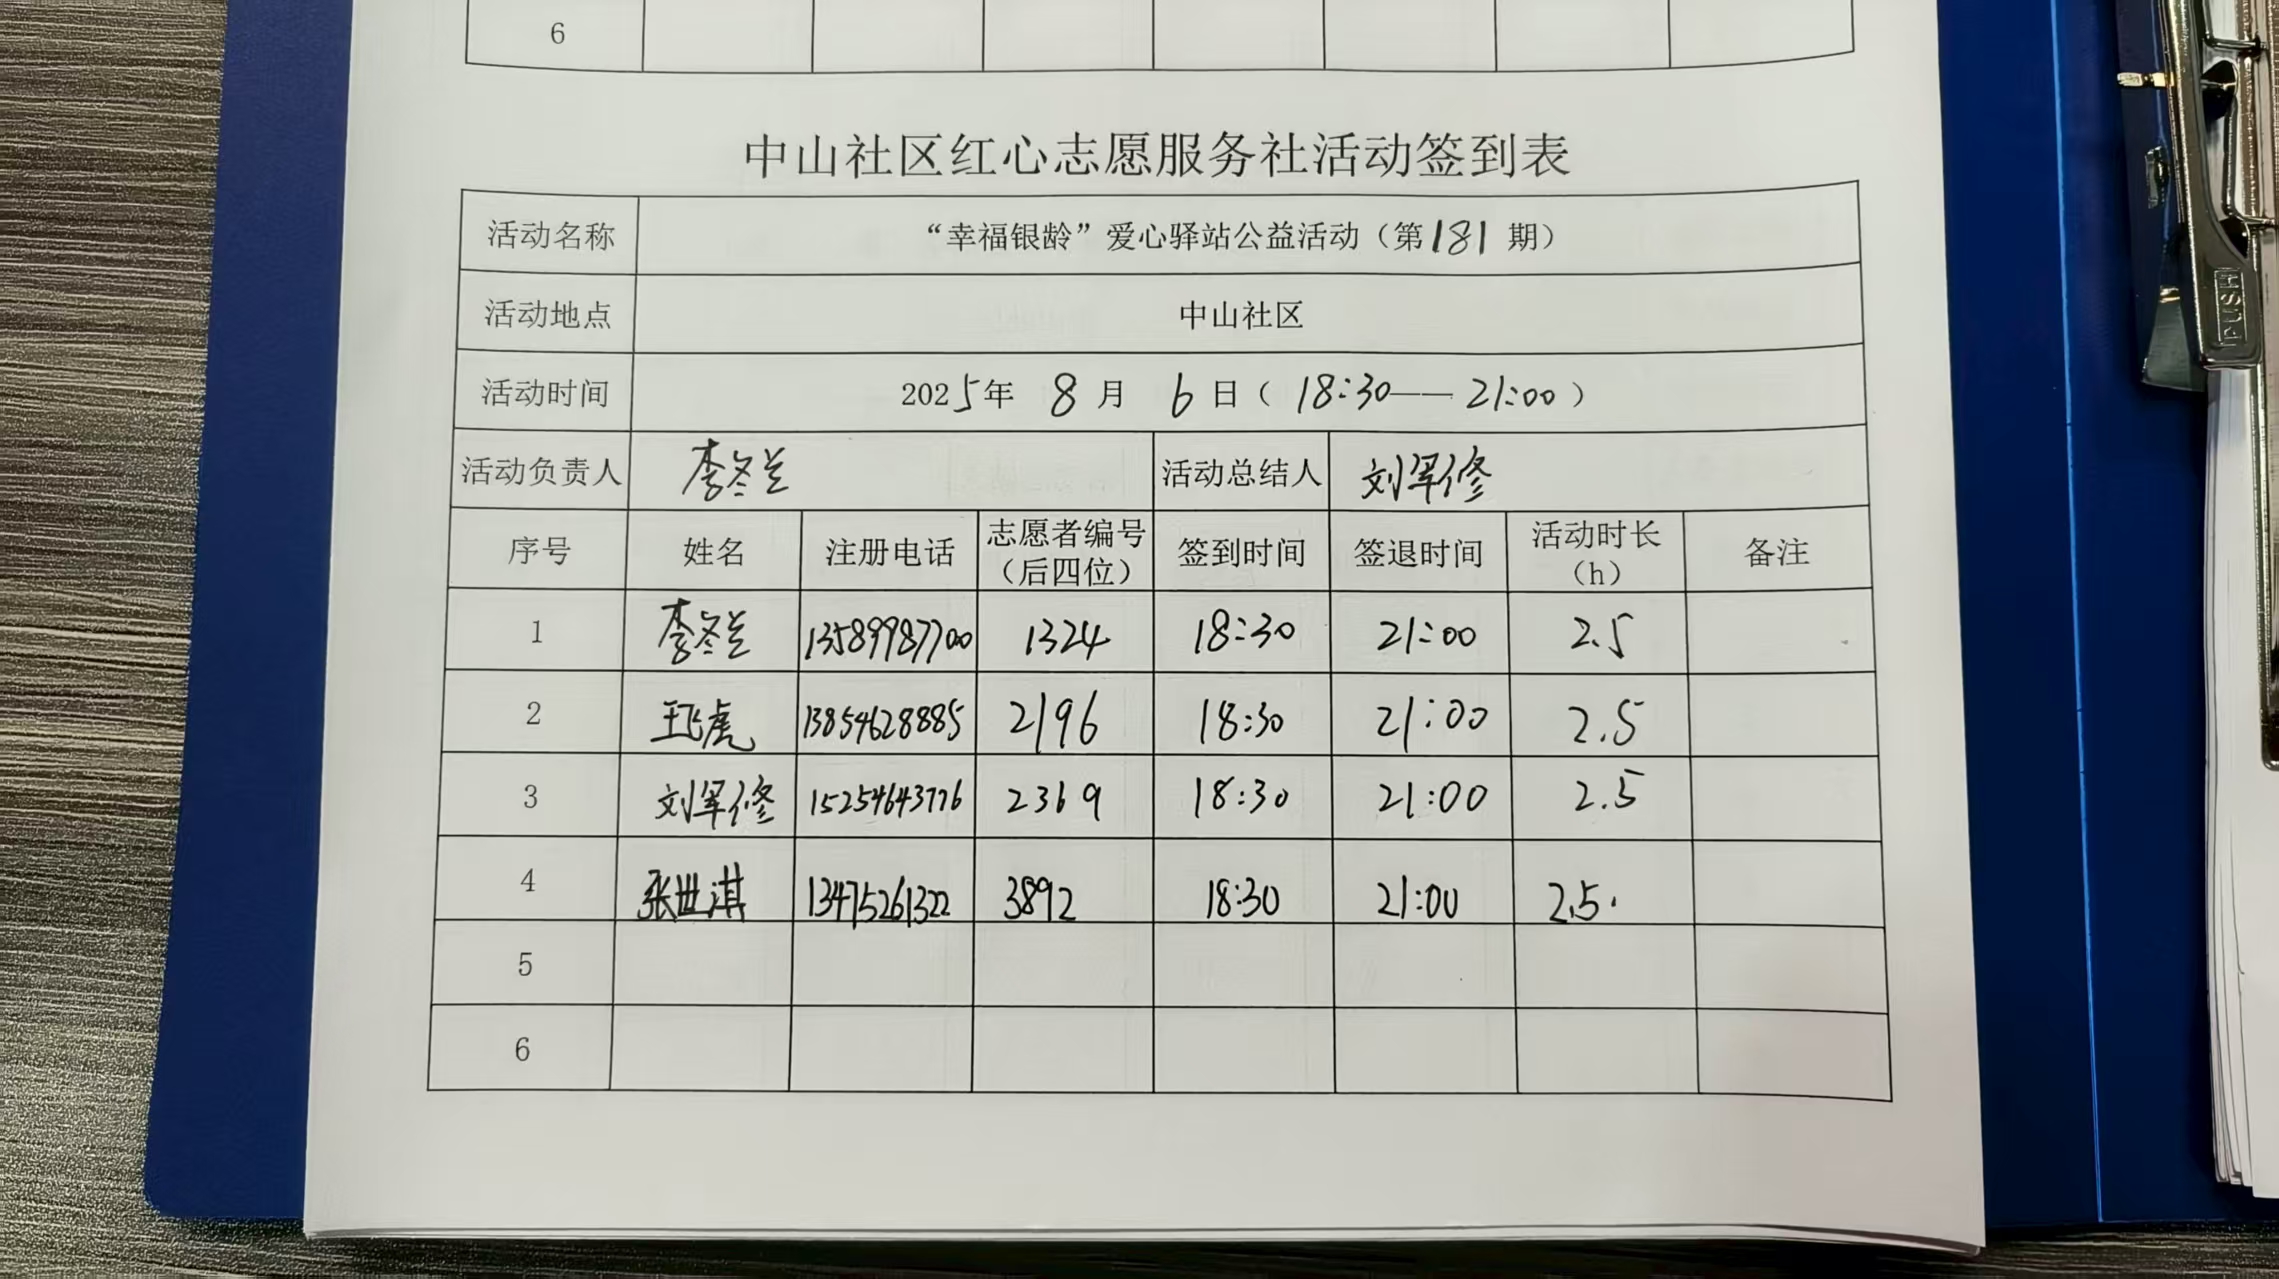 6
中山社区红心志愿服务社活动签到表
活动名称 “幸福银龄”爱心驿站公益活动（第181期）
活动地点 中山社区
活动时间 2025年 8月 6日（18:30——21:00）
活动负责人 李冬兰 活动总结人 刘军修
序号 姓名 注册电话 志愿者编号（后四位） 签到时间 签退时间 活动时长（h） 备注
1 李冬兰 13589987700 1324 18:30 21:00 2.5
2 王飞虎 13854628885 2196 18:30 21:00 2.5
3 刘军修 15254643776 2369 18:30 21:00 2.5
4 张世淇 13475261322 3892 18:30 21:00 2.5.
5
6
PUSH